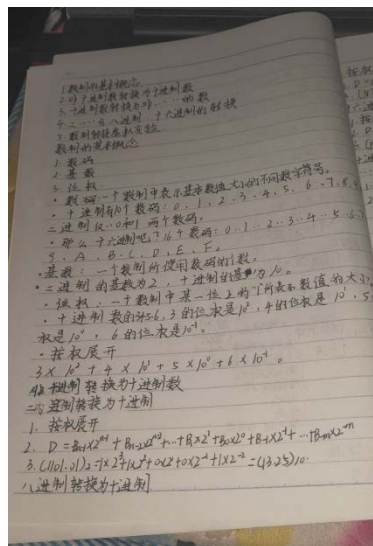 1.数制的基本概念
2.非十进制数转换为十进制数
3.十进制数转换为非……的数
4.二……与八进制,十六进制的转换
5.数制转换虚拟实验
数制的基本概念
1.数码
2.基数
3.位权
·数码:一个数制中表示基本数值大小的不同数字符号。
·十进制有10个数码:0、1、2、3、4、5、6、7、8、9
二进制仅:0和1两个数码。
·那么十六进制呢?16个数码:0、1…2…3…4…5…6…
9、A、B、C、D、E、F。
·基数:一个数制所使用数码的个数。
·二进制的基数为2,十进制的基为10。
·位权:一个数制中某一位上的1所表示数值的大小
·十进制数的345.6,3的位权是10²,4的位权是10¹,5
权是10⁰,6的位权是10⁻¹。
·按权展开
3×10²+4×10¹+5×10⁰+6×10⁻¹。
进制转换为十进制数
二进制转换为十进制
1.按权展开
2. D=Bn-1×2ⁿ⁻¹+Bn-2×2ⁿ⁻²+…+B1×2¹+B0×2⁰+B-1×2⁻¹+…+B-m×2⁻ᵐ
3.(1101.01)₂=1×2³+1×2²+0×2¹+0×2⁻¹+1×2⁻²=(13.25)10
八进制转换为十进制